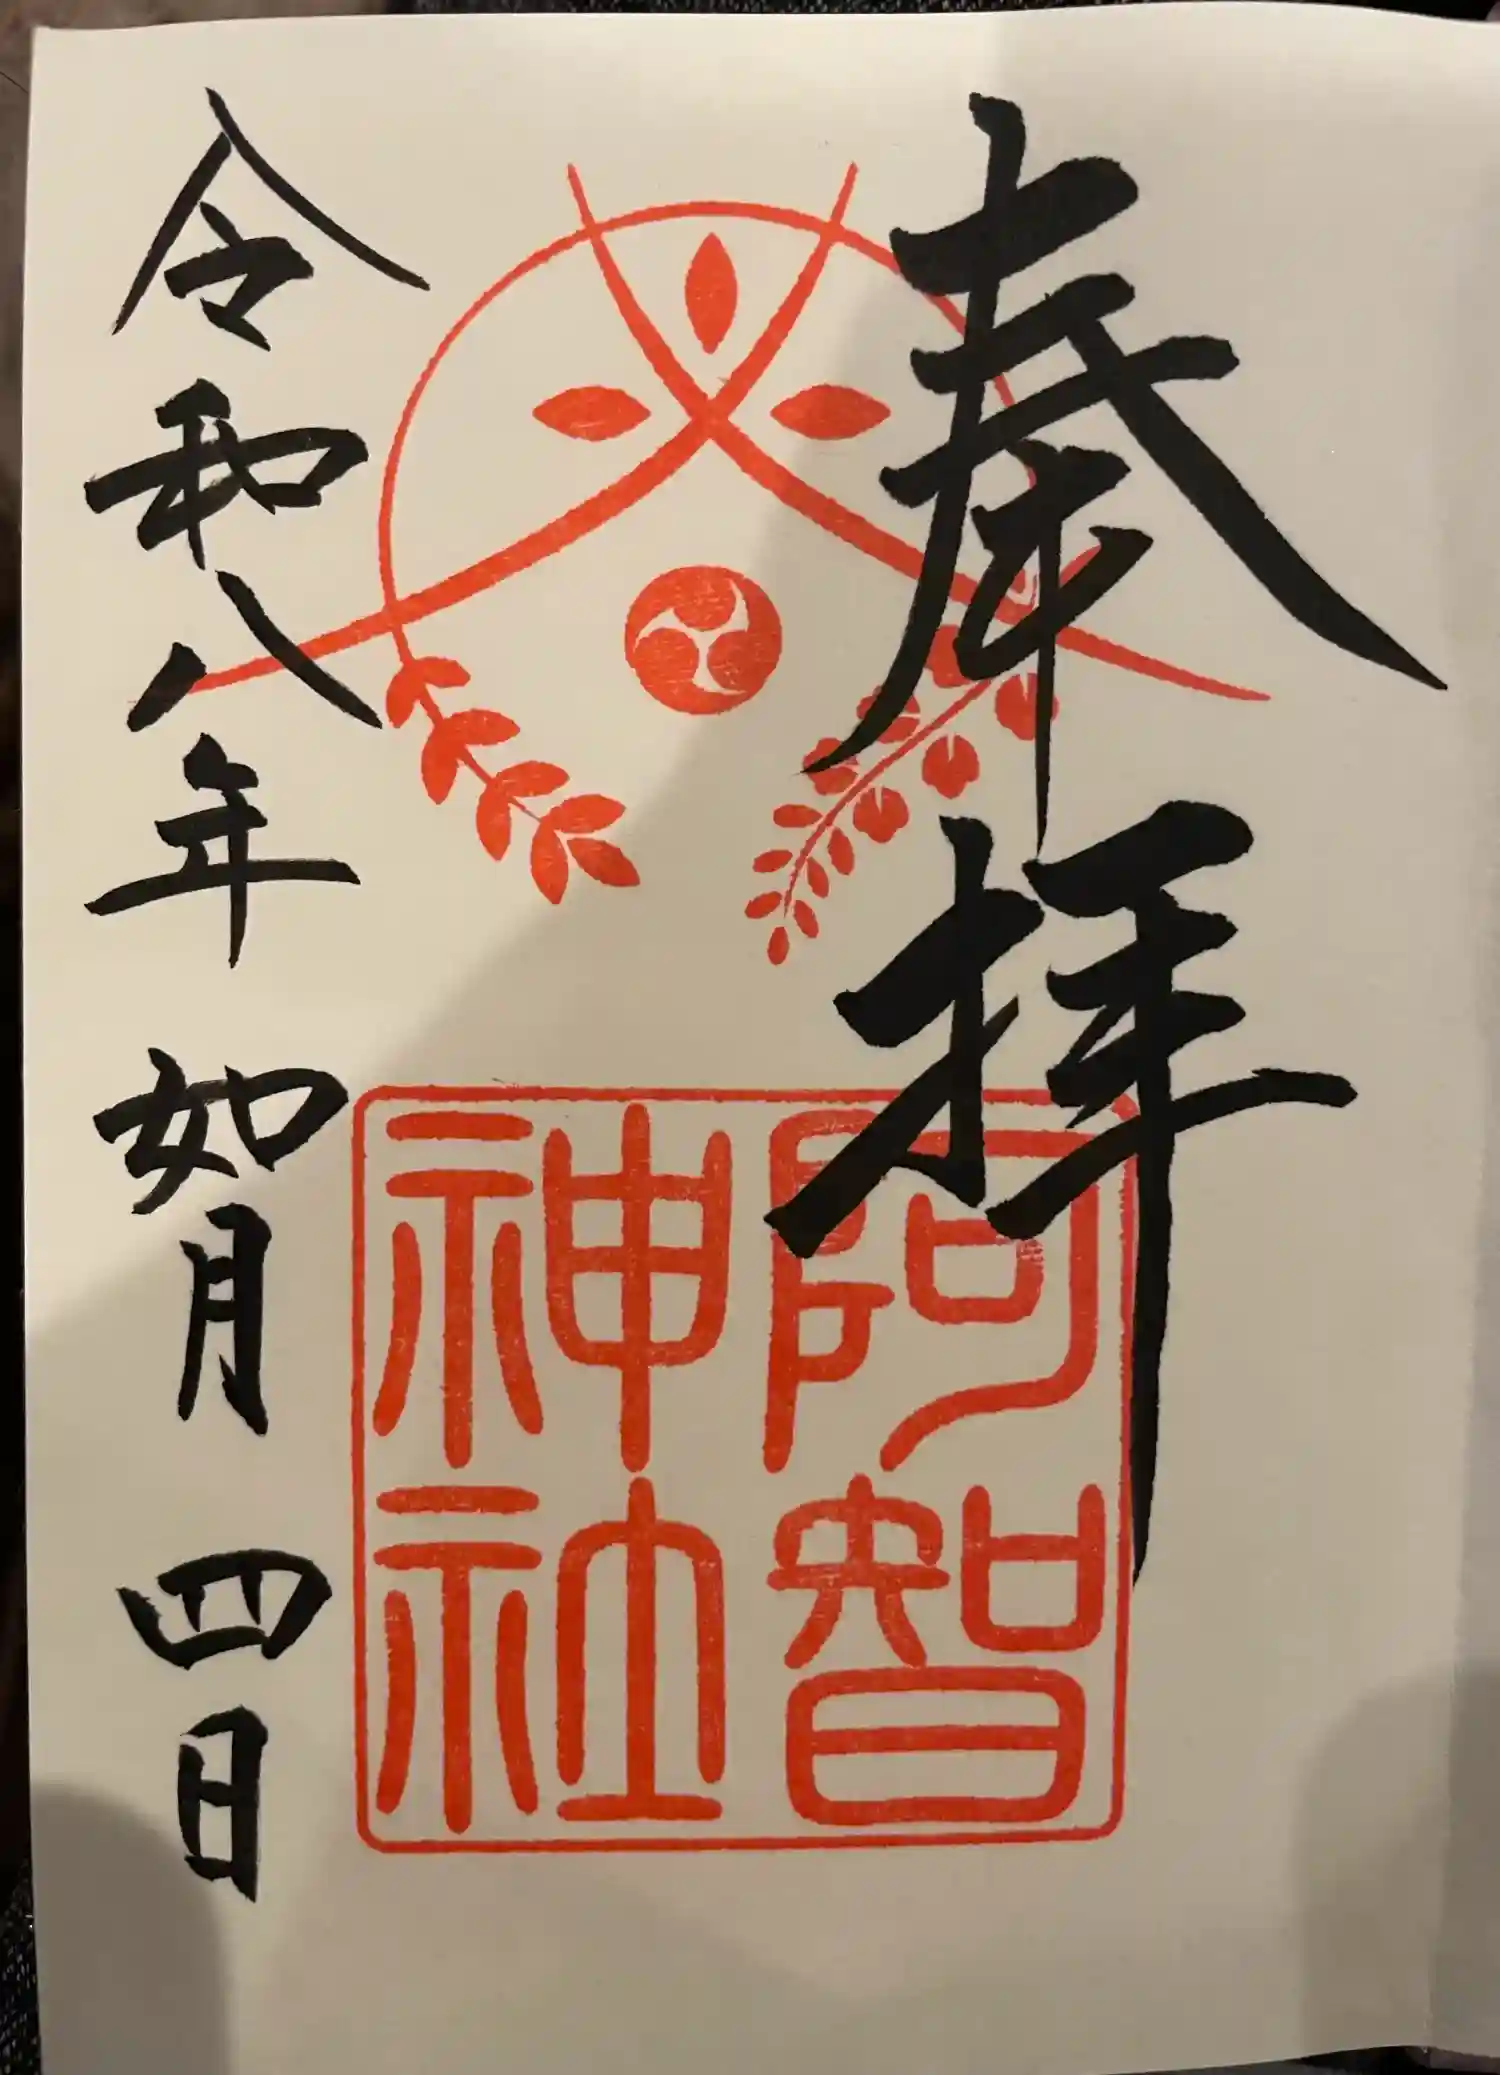 奉拝
阿智神社
令和八年 如月 四日